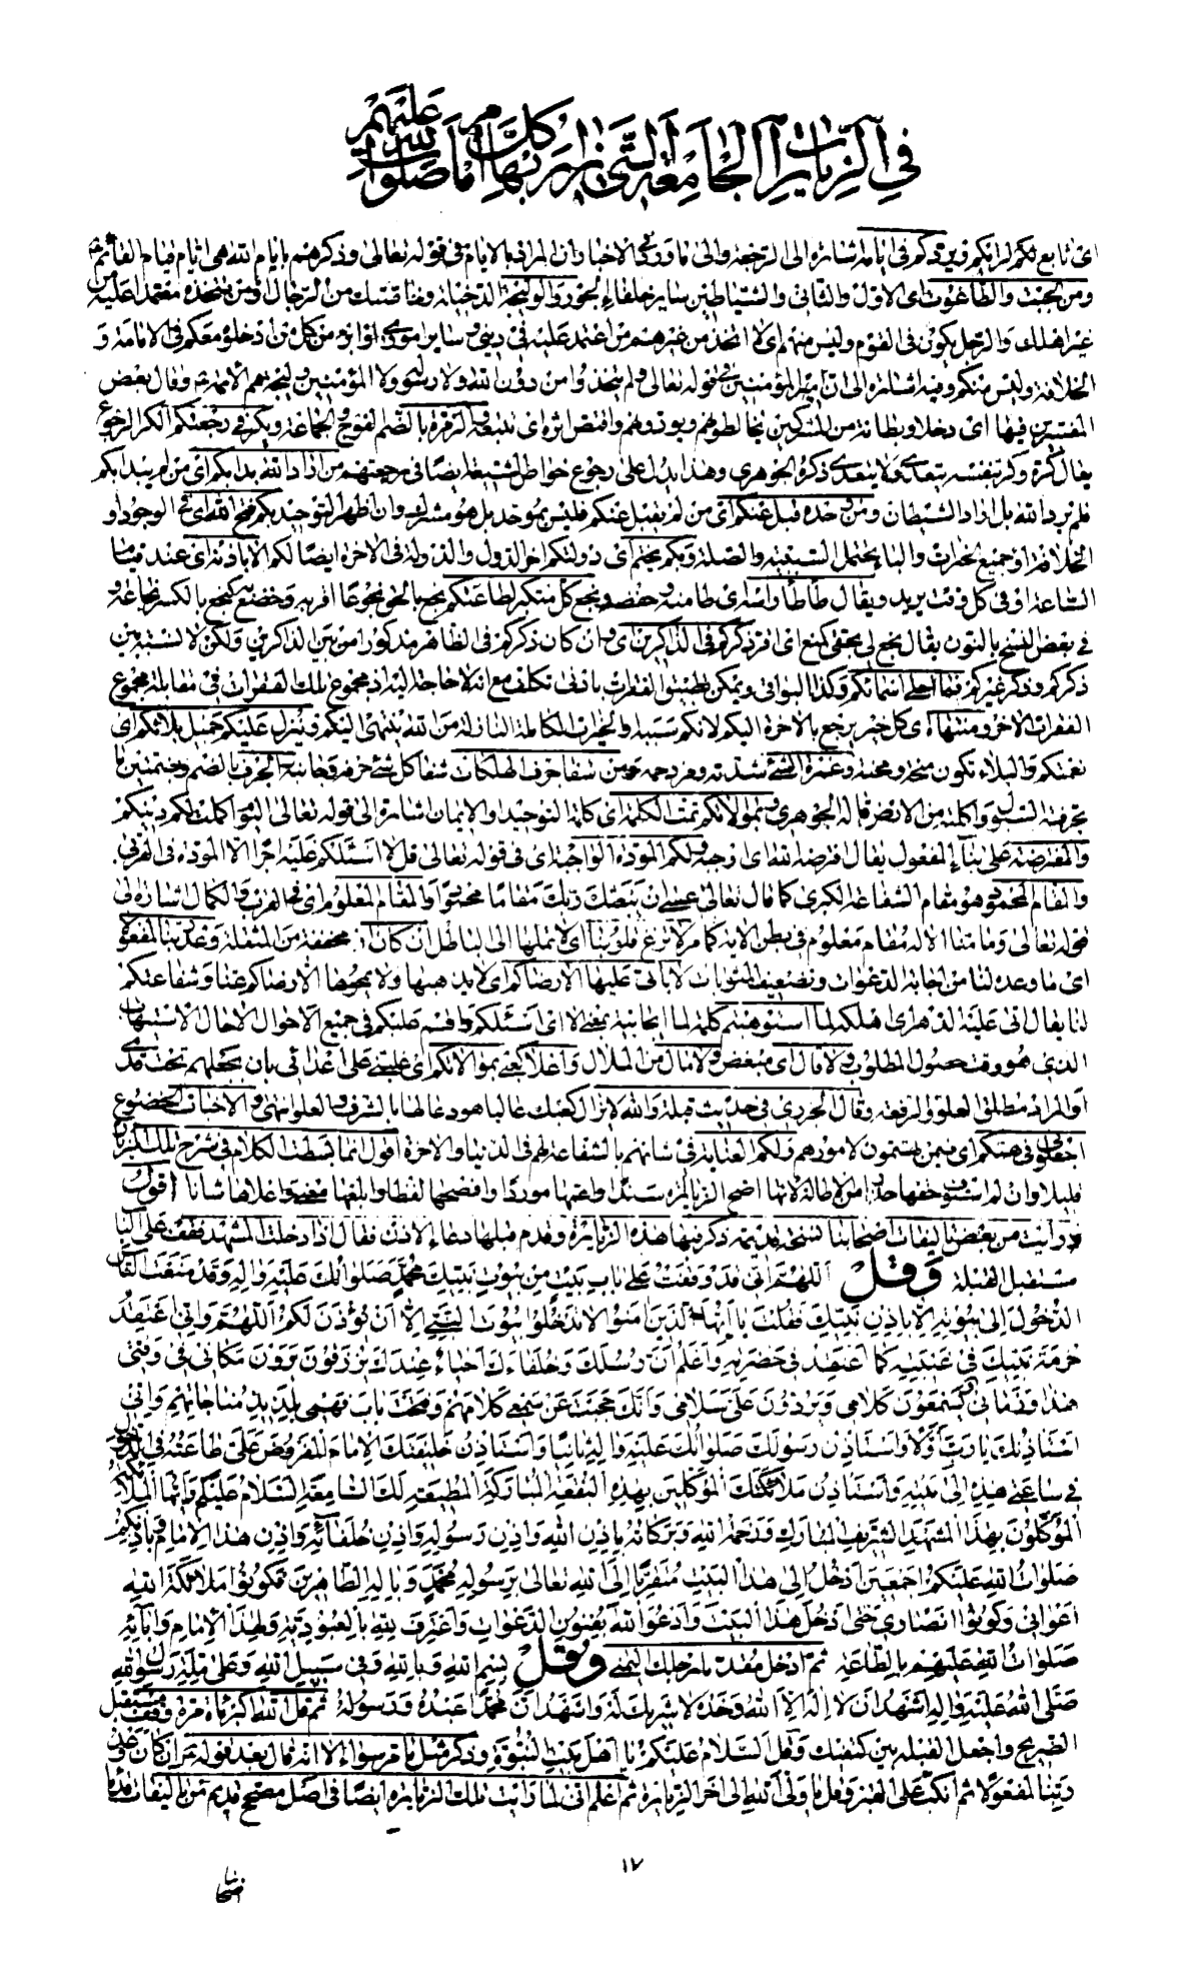 في الزيارات الجامعة التي يزار بها كل امام صلوات الله عليهم
اي تابع لكم لرأيكم ويردكم في ايامه اشارة الى الرجعة والى ما ورد في الاخبار ان المراد بالايام في قوله تعالى وذكرهم بايام الله هي ايام قيام القائم
ومن الجبت والطاغوت اي الاول والثاني والشياطين ساير خلفاء الجور والوليجة الدخيلة وخاصتك من الرجال ومن تتخذه معتمدا عليه من
غير اهلك والرجل يكون في القوم وليس منهم اي لا اتخذ من غيرهم من اعتمد عليه في ديني وساير اموري او ابرء من كل من ادخلوه معكم في الامامة و
الخلافة وليس منكم وفيه اشارة الى ان المؤمنين في قوله تعالى ولم يتخذوا من دون الله ولا رسوله ولا المؤمنين وليجة هم الائمة وقال بعض
المفسرين فيها اي دخلا وبطانة من المشركين يخالطونهم ويودونهم واقتص اثره اي تتبعه والزمرة بالضم الفوج والجماعة ويكر في رجعتكم الكر الرجوع
يقال كره وكر بنفسه يتعدى ولا يتعدى ذكره الجوهري وهذا يدل على رجوع خواص الشيعة ايضا في رجعتهم من اراد الله بدأ بكم اي من لم يبدأ بكم
فلم يرد الله بل اراد الشيطان ومن وحده قبل عنكم اي من لم يقبل عنكم فليس بموحد بل هو مشرك وان اظهر التوحيد بكم فتح الله اي في الوجود او
الخلافة او جميع الخيرات والباء يحتمل السببية والصلة وبكم يختم اي دولتكم اخر الدول والدولة في الاخرة ايضا لكم الا باذنه اي عند قيام
الساعة او في كل وقت يريد ويقال طأطأ رأسه اي طامنه وخفضه وبخع كل متكبر لطاعتكم بخع بالحق بخوعا اقر به وخضع كبخع بالكسر بخاعة و
في بعض النسخ بالنون يقال نجع لي بحقي كمنع اي اقر ذكركم في الذاكرين اي وان كان ذكركم في الظاهر مذكورا من بين الذاكرين ولكن لا نسبة بين
ذكركم وذكر غيركم فما احلى اسمائكم وكذا البواقي ويمكن تطبيق الفقرات بادنى تكلف مع انه لا حاجة اليه اذ مجموع تلك الفقرات في مقابلة مجموع
الفقرات الاخر ومنتهاه اي كل خير يرجع بالاخرة اليكم لانكم سببه او الخيرات الكاملة النازلة من الله تنتهي اليكم وتنزل عليكم جميل بلائكم اي
نعمتكم والبلاء تكون منحة ومحنة وغمرة الشيء شدته ومزدحمه ومن شفا جرف الهلكات شفا كل شيء حرفه وجانبه والجرف بالضم وبضمتين ما
تجرفته السيول واكلته من الارض قاله الجوهري وبموالاتكم تمت الكلمة اي كلمة التوحيد والايمان اشارة الى قوله تعالى اليوم اكملت لكم دينكم
والمفترضة على بناء المفعول يقال افترضه الله اي اوجبه ولكم المودة الواجبة اي في قوله تعالى قل لا اسئلكم عليه اجرا الا المودة في القربى
والمقام المحمود هو مقام الشفاعة الكبرى كما قال تعالى عسى ان يبعثك ربك مقاما محمودا والمقام المعلوم اي في القرب والكمال اشارة الى
قوله تعالى وما منا الا له مقام معلوم في بطن الاية كما مر لا تزغ قلوبنا اي لا تملها الى الباطل ان كان مخففة من المثقلة وعد ربنا لمفعولا
اي ما وعده لنا من اجابة الدعوات وتضعيف المثوبات لا ياتي عليها الا رضاكم اي لا يذهبها ولا يمحوها الا رضاكم عنا وشفاعتكم
لنا يقال اتى عليه الدهر اي اهلكه لما استوهبتم كلمة لما ايجابية بمعنى الا اي اسئلكم واقسم عليكم في جميع الاحوال الا حال الاستيهاب
الذي هو وقت حصول المطلوب ولا قال اي مبغض ولا مال من الملال واعلا كعبي بموالاتكم اي غلبتي على اعدائي بان يجعلهم تحت قدمي
او المراد مطلق العلو والرفعة وقال الجزري في حديث قيلة والله لا يزال كعبك عاليا هو دعاء لها بالشرف والعلو انتهى والاخبات الخضوع
اجعلوني في همكم اي فيمن تهتمون لامورهم ولكم العناية في شانهم بالشفاعة لهم في الدنيا والاخرة اقول انما بسطت الكلام في شرح تلك الزيارة
قليلا وان لم استوف حقها حذرا من الاطالة لانها اصح الزيارات سندا واعمها موردا وافصحها لفظا وابلغها معنى واعلاها شانا اقول
ورأيت من بعض تاليفات اصحابنا نسخة قديمة ذكر فيها هذه الزيارة وقدم قبلها دعاء الاذن فقال اذا دخلت المشهد فقف على الباب
مستقبل القبلة وقل اللهم اني قد وقفت على باب بيت من بيوت نبيك محمد صلواتك عليه واله وقد منعت الناس
الدخول الى بيوته الا باذن نبيك فقلت يا ايها الذين امنوا لا تدخلوا بيوت النبي الا ان يؤذن لكم اللهم واني اعتقد
حرمة نبيك في غيبته كما اعتقد في حضرته واعلم ان رسلك وخلفاءك احياء عندك يرزقون يرون مكاني في وقتي
هذا وزماني ويسمعون كلامي ويردون علي سلامي وانك حجبت عن سمعي كلامهم وفتحت باب فهمي بلذيذ مناجاتهم واني
استاذنك يا رب اولا واستاذن رسولك صلواتك عليه واله ثانيا واستاذن خليفتك الامام المفروض علي طاعته في الدخول
في ساعتي هذه الى بيته واستاذن ملائكتك الموكلين بهذه البقعة المباركة المطيعة لك السامعة السلام عليكم ايها الملائكة
الموكلون بهذا المشهد الشريف المبارك ورحمة الله وبركاته باذن الله واذن رسوله واذن خلفائه واذن هذا الامام وباذنكم
صلوات الله عليكم اجمعين ادخل الى هذا البيت متقربا الى الله تعالى برسوله محمد وباله الطاهرين فكونوا ملائكة الله
اعواني وكونوا انصاري حتى ادخل هذا البيت وادعو الله بفنون الدعوات واعترف لله بالعبودية ولهذا الامام وابائه
صلوات الله عليهم بالطاعة ثم ادخل مقدما رجلك اليمنى وقل بسم الله وبالله وفي سبيل الله وعلى ملة رسول الله
صلى الله عليه واله اشهد ان لا اله الا الله وحده لا شريك له واشهد ان محمدا عبده ورسوله ثم قل الله اكبر مائة مرة وقف مستقبل
الضريح واجعل القبلة بين كتفيك وقل السلام عليكم يا اهل بيت النبوة وذكر مثل ما مر سواء الا انه قال بعد قوله ان كان وعد
ربنا لمفعولا ثم انكب على القبر وقل يا ولي الله الى اخر الزيارة ثم اعلم اني لما رايت تلك الزيارة ايضا في اصل مصحح قديم من تاليفات قدماء
١٧
اصحابنا